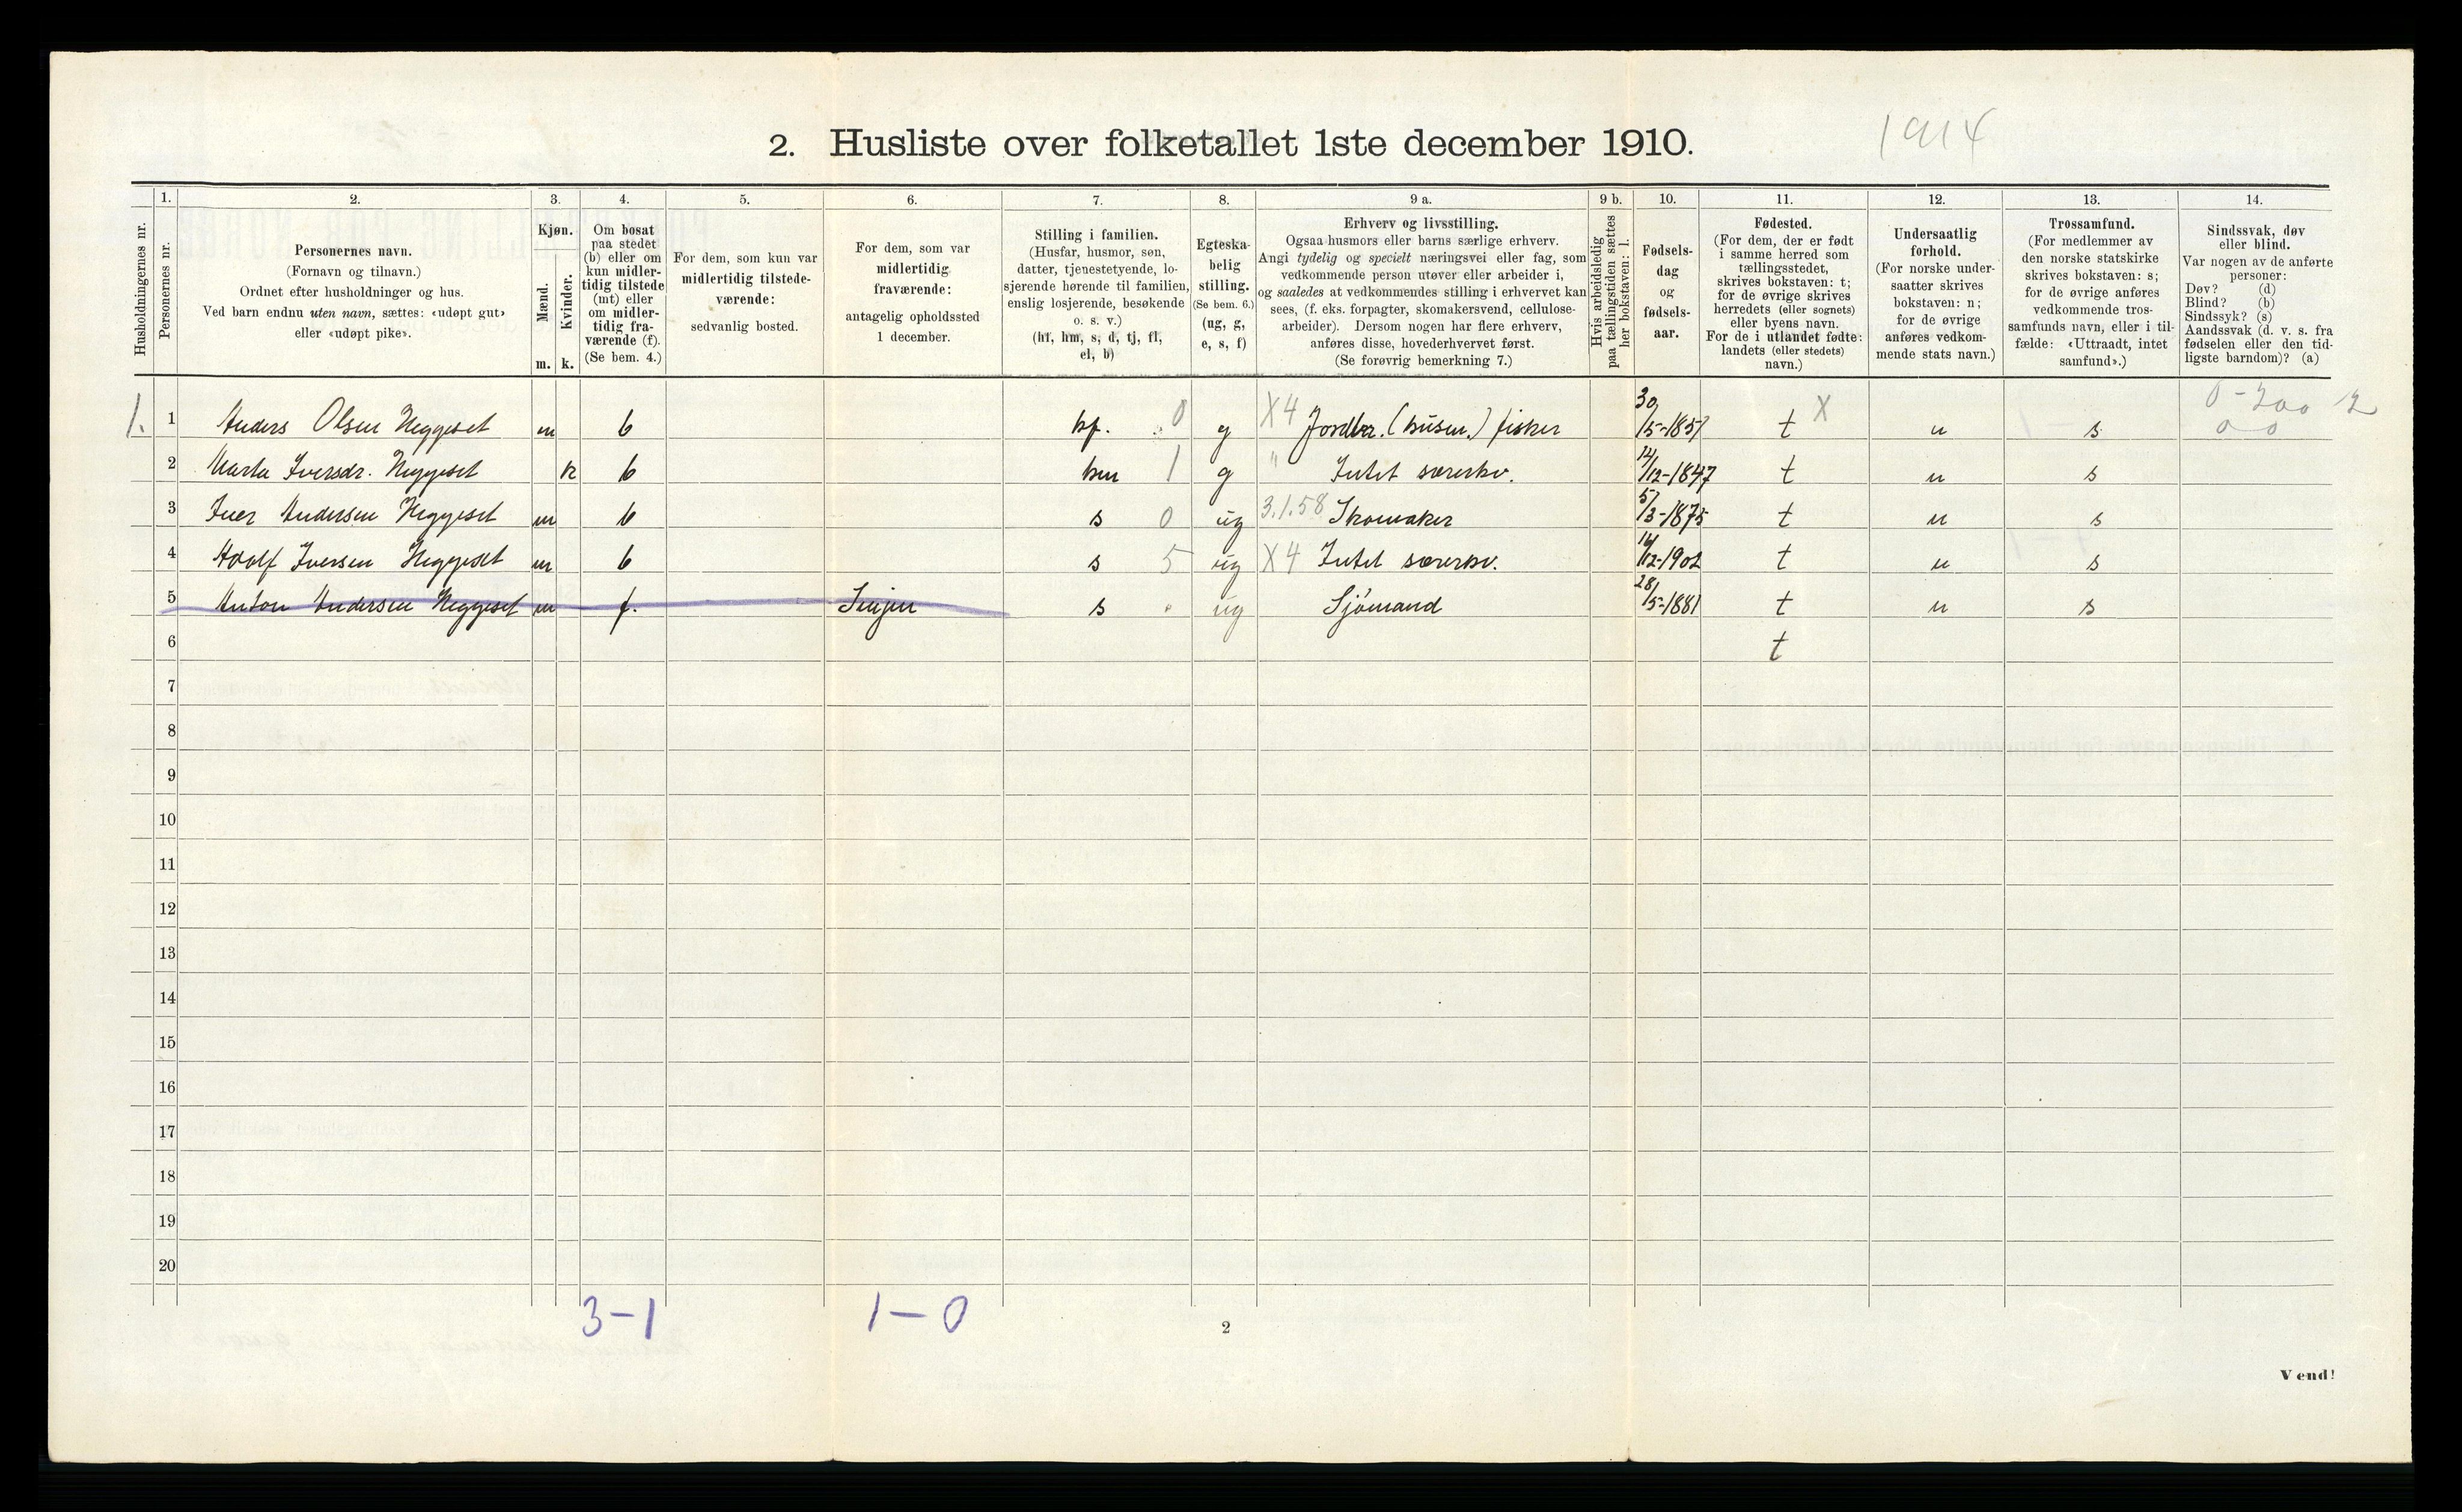 2. Husliste over folketallet 1ste december 1910.
1914
Husholdningernes nr.
1.
Personernes nr.
2.
Personernes navn.
(Fornavn og tilnavn.)
Ordnet efter husholdninger og hus.
Ved barn endnu uten navn, sættes: «udøpt gut»
eller «udøpt pike».
3.
Kjøn.
Mænd.
Kvinder.
m. k.
4.
Om bosat
paa stedet
(b) eller om
kun midler-
tidig tilstede
(mt) eller
om midler-
tidig fra-
værende (f).
(Se bem. 4.)
5.
For dem, som kun var
midlertidig tilstede-
værende:
sedvanlig bosted.
6.
For dem, som var
midlertidig
fraværende:
antagelig opholdssted
1 december.
7.
Stilling i familien.
(Husfar, husmor, søn,
datter, tjenestetyende, lo-
sjerende hørende til familien,
enslig losjerende, besøkende
o. s. v.)
(hf, hm, s, d, tj, fl,
el, b)
8.
Egteska-
belig
stilling.
(Se bem. 6.)
(ug, g,
e, s, f)
9 a.
Erhverv og livsstilling.
Ogsaa husmors eller barns særlige erhverv.
Angi tydelig og specielt næringsvei eller fag, som
vedkommende person utøver eller arbeider i,
og saaledes at vedkommendes stilling i erhvervet kan
sees, (f. eks. forpagter, skomakersvend, cellulose-
arbeider). Dersom nogen har flere erhverv,
anføres disse, hovederhvervet først.
(Se forøvrig bemerkning 7.)
9 b.
Hvis arbeidsledig
paa tællingstiden sættes
her bokstaven: l.
10.
Fødsels-
dag
og
fødsels-
aar.
11.
Fødested.
(For dem, der er født
i samme herred som
tællingsstedet,
skrives bokstaven: t;
for de øvrige skrives
herredets (eller sognets)
eller byens navn.
For de i utlandet fødte:
landets (eller stedets)
navn.)
12.
Undersaatlig
forhold.
(For norske under-
saatter skrives
bokstaven: n;
for de øvrige
anføres vedkom-
mende stats navn.)
13.
Trossamfund.
(For medlemmer av
den norske statskirke
skrives bokstaven: s;
for de øvrige anføres
vedkommende tros-
samfunds navn, eller i til-
fælde: «Uttraadt, intet
samfund».)
14.
Sindssvak, døv
eller blind.
Var nogen av de anførte
personer:
Døv? (d)
Blind? (b)
Sindssyk? (s)
Aandssvak (d. v. s. fra
fødselen eller den tid-
ligste barndom)? (a)
1. 1 Anders Olsen Heggeset m b hf. 0 g X4 Jordbr. (husm.) fisker 30/5-1857 t X n s 0-200 2
0 0
2 Marta Iversdr. Heggeset k b hm 1 g " Intet særerhv. 14/12-1847 t n s
3 Iver Andersen Heggeset m b s 0 ug 3.1.58 Skomaker 5/3-1875 t n s
4 Adolf Iversen Heggeset m b s 5 ug X4 Intet særerhv. 14/12-1902 t n s
5 Anton Andersen Heggeset m f. s ug Sjømand 28/5-1881 t n s
6 t
7
8
9
10
11
12
13
14
15
16
17
18
19
20
3-1 1-0
2
Vend!